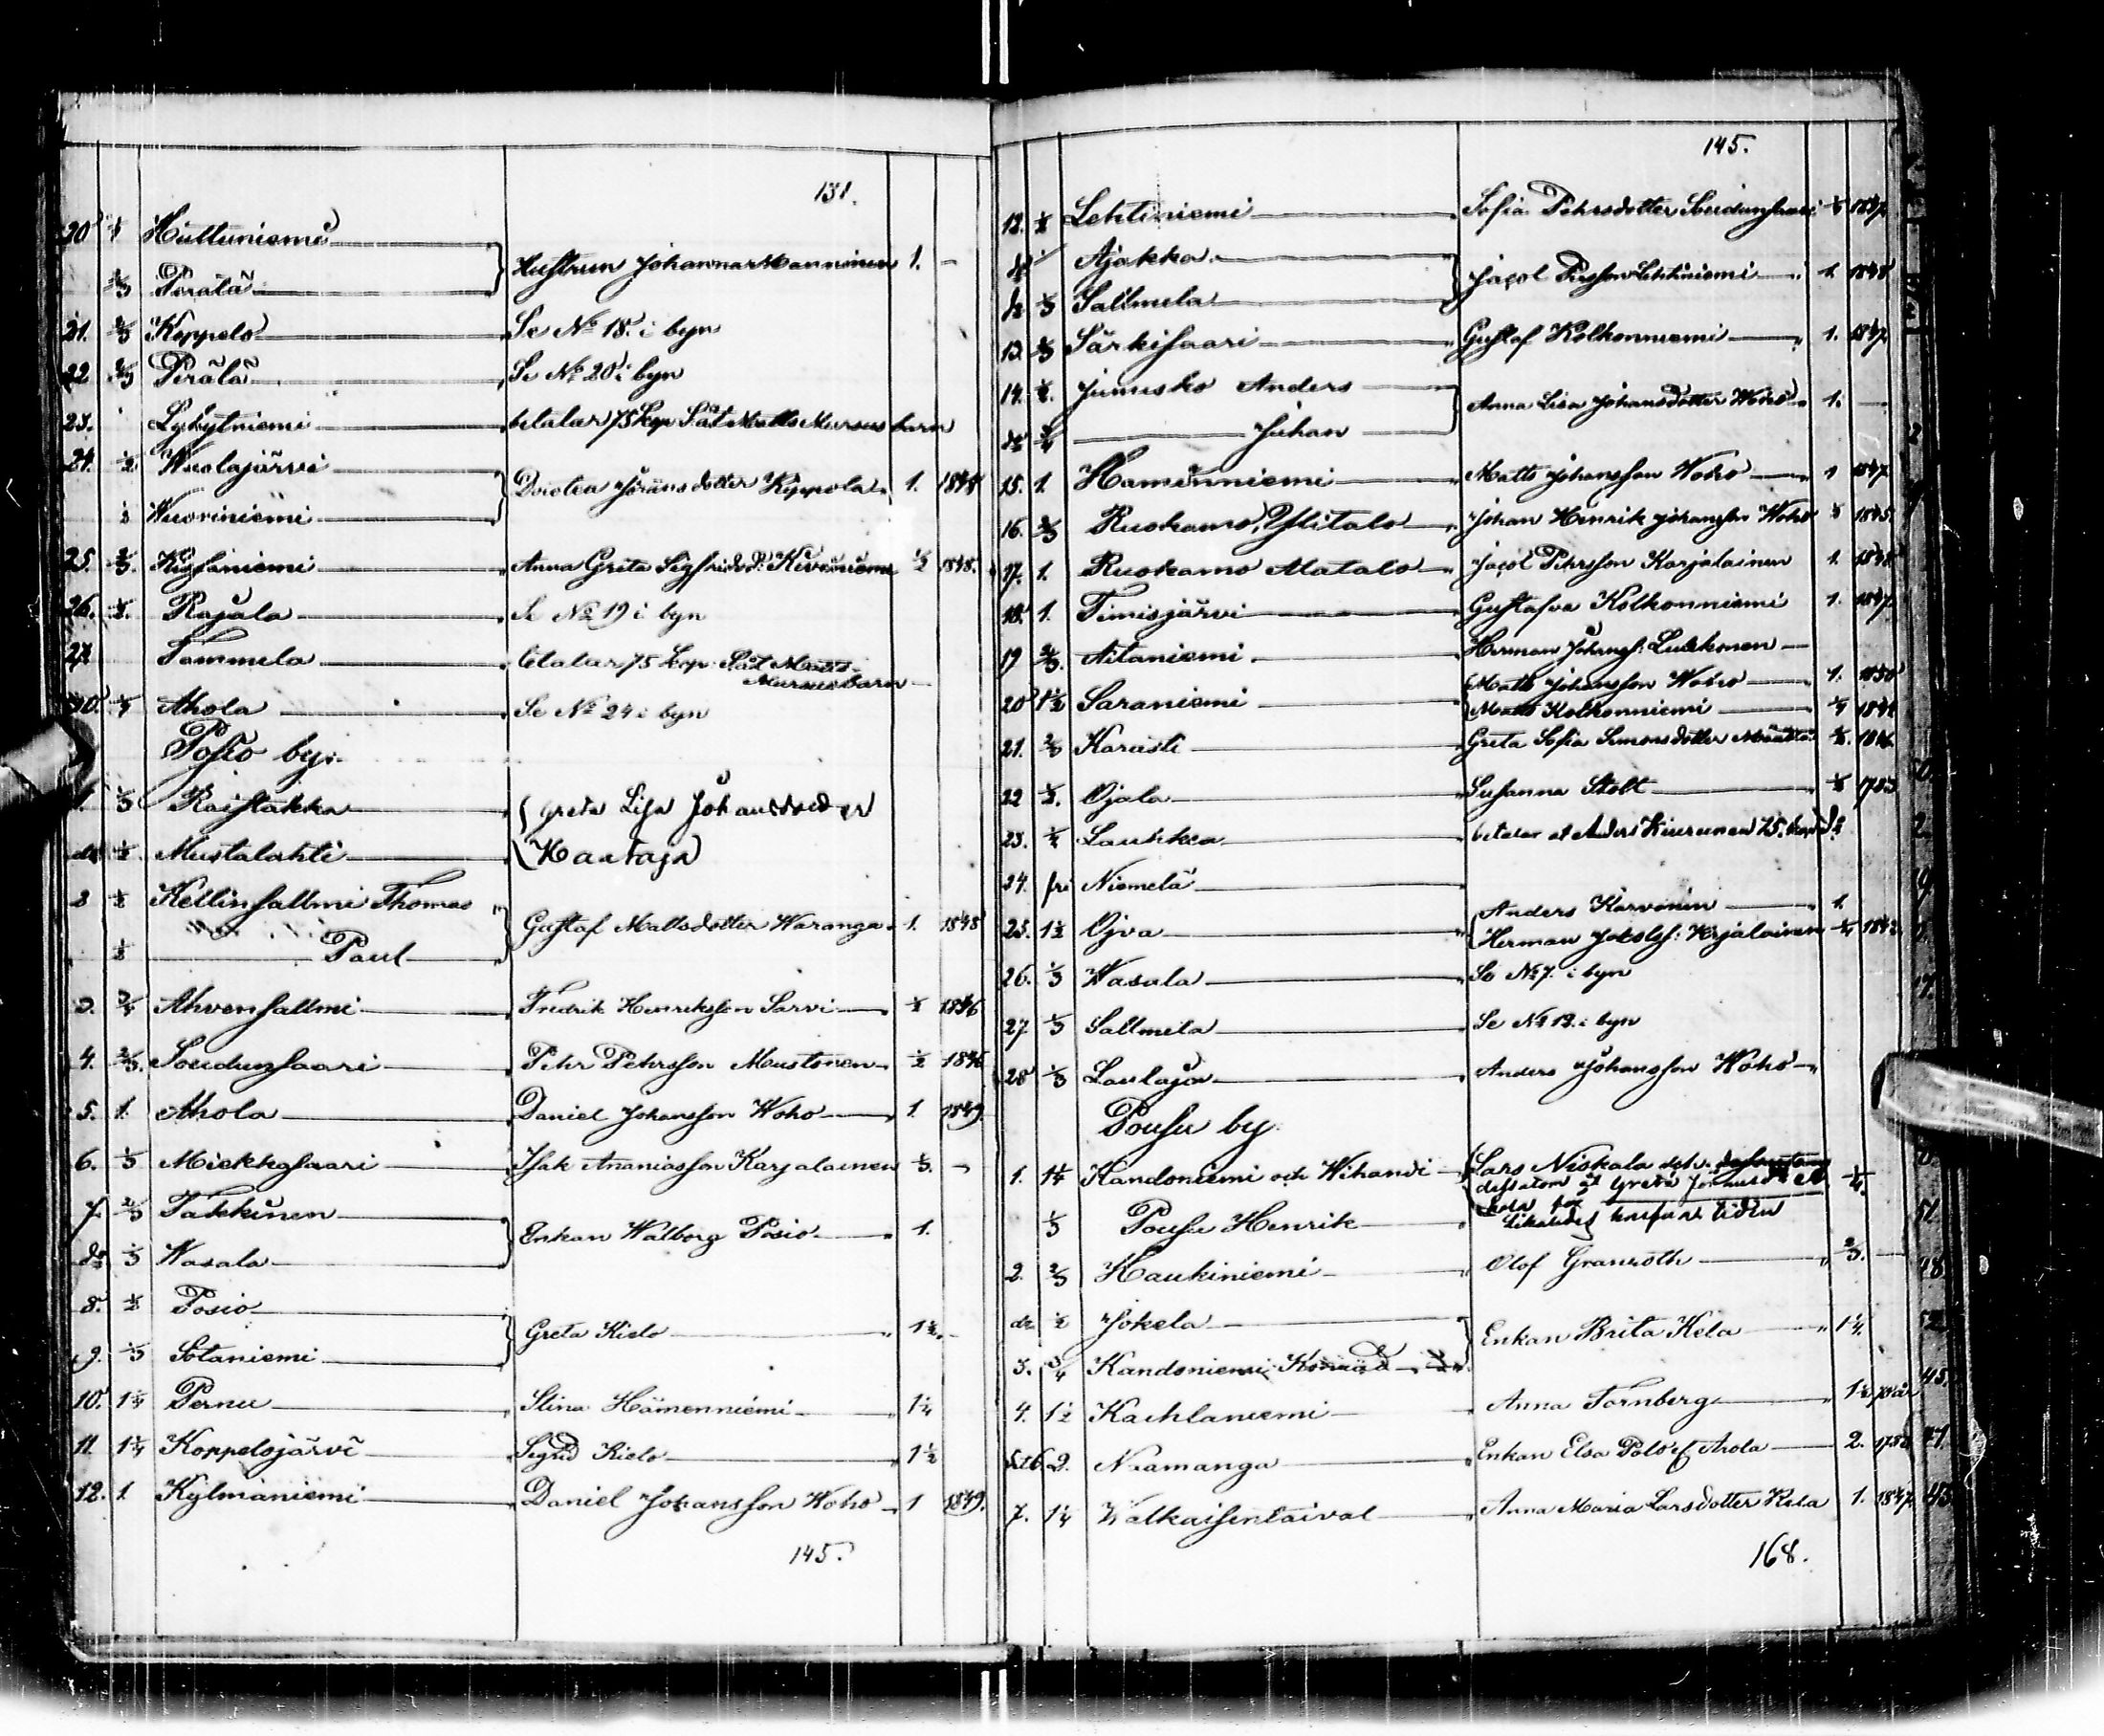 131.
20 Hultuniemi
2/3 Perälä Hustrun Johanna Manninen 1. –
21. 2/3 Koppelo Se No 18. i byn
22 2/3 Perälä Se No 20 i byn
23. Lykytniemi betalar 75 kop Såt Matts Mursus barn
24. 1/2 Wuolajärvi
Wuoriniemi Dorotea Jöransdotter Kippola 1. 1848
25. 2/3 Anna Greta Sigfridsd: 1/2 1848.
26. 1/2. Rajala Se No 19 i byn
27 Tommela betalar 75 kop Såt Matts
Mursus barn
30. 1/4 Ahola Se No 24 i byn
Posio by.
1. 1/3 Raistakka Greta Lisa Johansdoter
do 1/2 Mustalahti Hautaja
2 1/2 Kellinsallmi Thomas
1/2 Paul Gustaf Mattsdotter Waranga 1. 1848
3. 3/4 Ahvensallmi Fredrik Henriksson Sarvi 1/2 1846
4. 2/3. Soudunsaari Pehr Pehrsson Mustonen 1/2 1846
5. 1. Ahola Daniel Johansson Woho 1. 1849.
6. 1/3 Miekkasaari Isak Ananiasson Karjalainen 1/3. –
7. 2/3 Takkinen
do 1/3 Wasala Enkan Walborg Posio 1.
8. 1/2 Posio
9. 1/3 Sotaniemi Greta Kielo 1 1/2. –
10. 1 1/4 Pernu Stina Hämenniemi 1 1/4
11. 1 1/4 Koppelojärvi Sigrid Kielo 1 1/2
12. 1 Kylmäniemi Daniel Johansson Woho 1 1849.
145.
145.
12. 1/2 Lehtiniemi Sofia Pehrsdotter Soudunsaari 1847.
do Ajakka
do 1/3 Sallmela Jacob Persson Lehtiniemi 1. 1848
13. 2/3 Särkisaari Gustaf Kolkonniemi 1. 1847
14. 1/2. Jumisko Anders
do 3/4 Johan Anna Lisa Johansdotter Woho 1. –
15. 1. Haminniemi Matts Johansson Woho 1 1847
16. 2/3 Ruokamo, Ylitalo Johan Henrik Johansson Woho 1845.
17. 1. Ruokamo Alatalo Jacob Pehrsson Karjalainen 1. 1848
18. 1. Timisjärvi Gustafva Kolkonniemi 1. 1847.
19 2/3. Aitaniemi Herman Johanss: Lukkonen
20 1 1/2 Saraniemi Matts Johansson Woho 1. 1850
Matts Kolkonniemi 1/4
21. 2/3 Karasti Greta Sofia Simonsdotter Määttä 1/2
22 1/2. Ojala Susanna Stolt 1/2
23. 1/4 Lauhkea betalar åt Anders Kiurunen 75. kop
24. fri Niemelä
25. 1 1/2 Ojva Anders Karvonen 1.
Herman Jakobss: Karjalainen 1/4 1842
26. 1/3 Wasala Se No 7. i byn
27 1/3 Sallmela Se No 12. i byn
28 1/3 Laulaja Anders Johansson Woho
Pousu by.
1. 1 1/4 Kandoniemi och Wihandi Lars Niskala
dessutom åt Greta
1/3 Pousu Henrik Likaledes tiden
2. 2/3 Haukiniemi Olof Granroth 2/3. –
do 1/2 Jokela
3. 3/4 Kandoniemi Konrad Enkan Brita Kela 1 1/4.
4. 1 1/2 Kachlaniemi Anna Tornberg 1 1/2
5 et 6 2. Naamanga Enkan Elsa Polo ef Arola 2.
7. 1 1/4 Walkaisentaival Anna Maria Larsdotter Kela 1. 1847.
168.